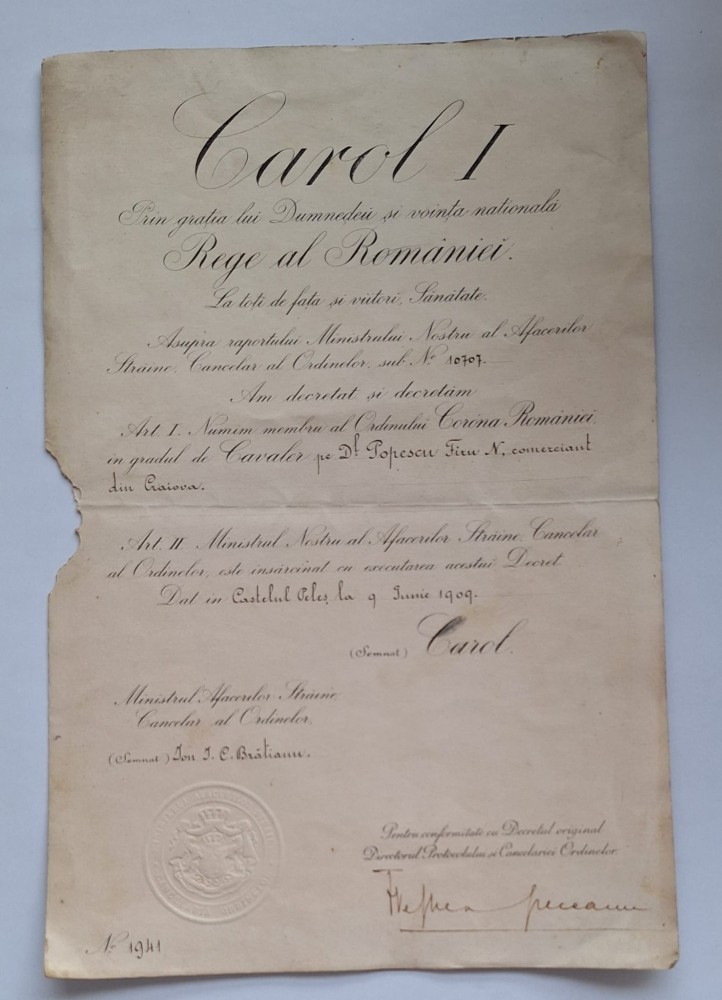 Carol I
Prin grația lui Dumnedeu și voința națională
Rege al României.
La toți de față și viitori, Sănătate.
Asupra raportului Ministrului Nostru al Afacerilor
Străine, Cancelar al Ordinelor, sub No 10707.
Am decretat și decretăm
Art. I. Numim membru al Ordinului Coróna României,
în gradul de Cavaler pe Dl Popescu Firu N, comerciant
din Craiova.
Art. II. Ministrul Nostru al Afacerilor Străine, Cancelar
al Ordinelor, este însărcinat cu executarea acestui Decret.
Dat in Castelul Peleș la 9 Iunie 1909.
(Semnat) Carol.
Ministrul Afacerilor Străine,
Cancelar al Ordinelor,
(Semnat) Ion I. C. Brătianu.
Pentru conformitate cu Decretul original
Directorul Protocolului și Cancelariei Ordinelor.
No 1941